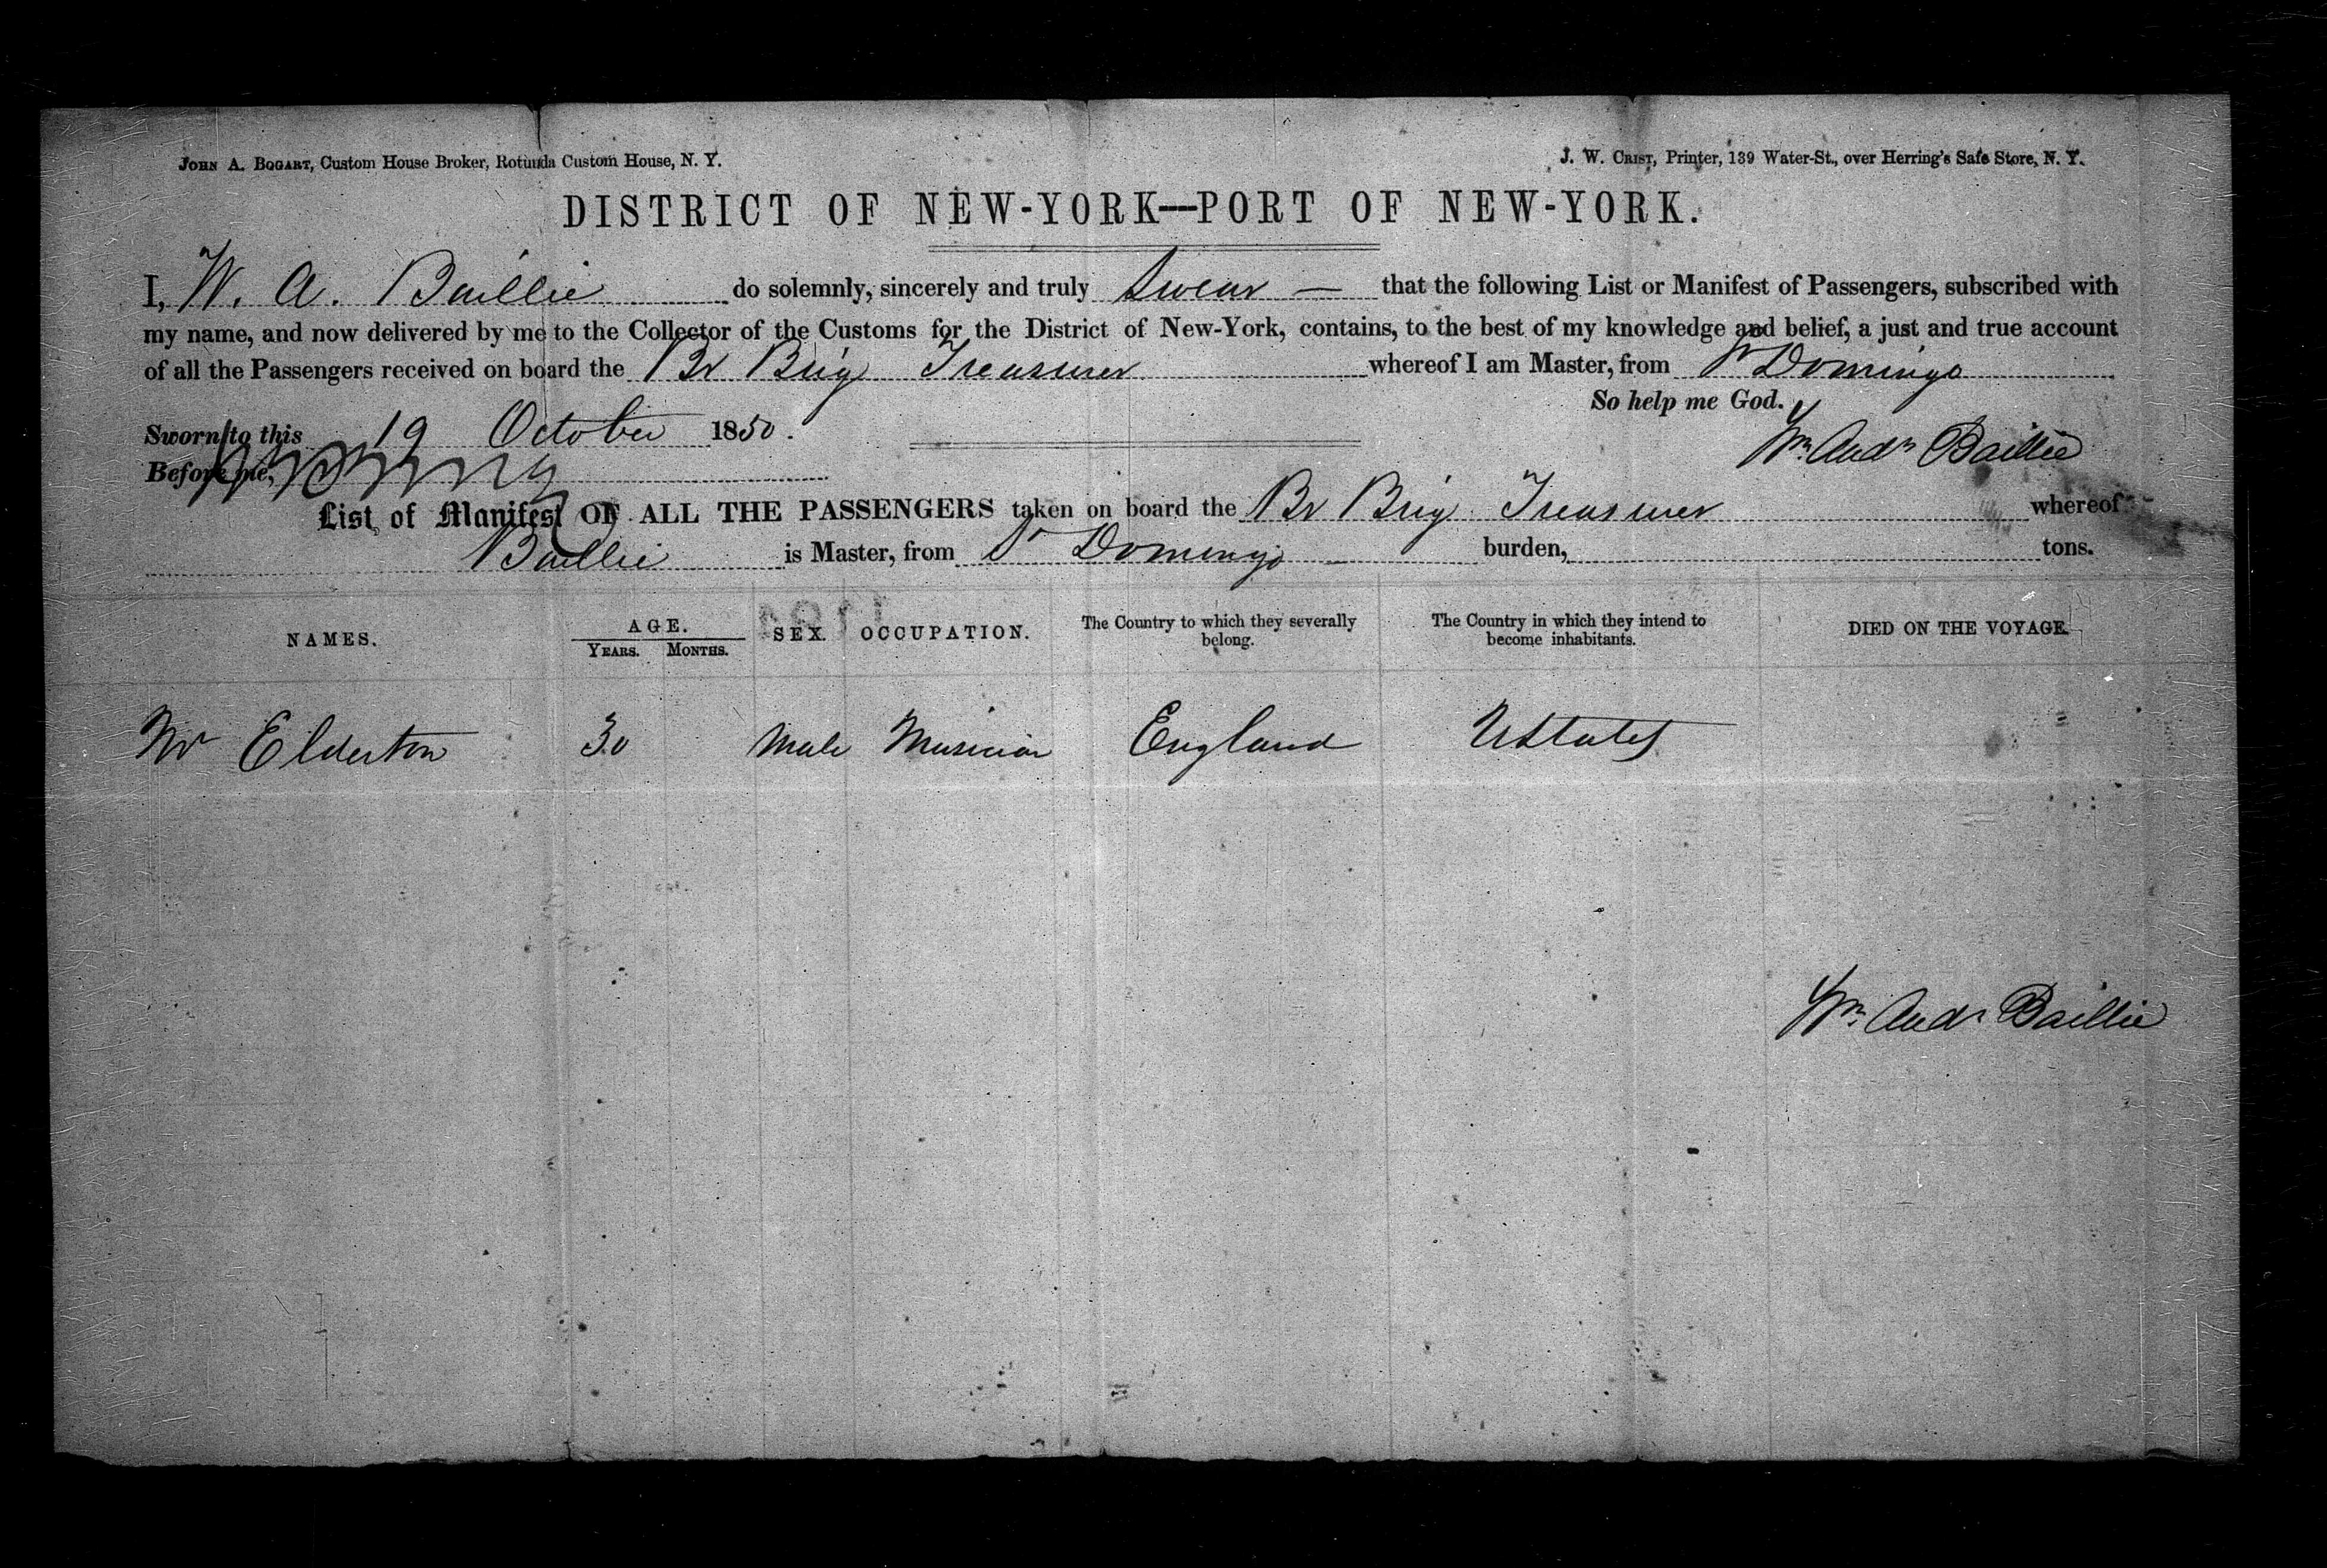 JOHN A. BOGART, Custom House Broker, Rotunda Custom House, N. Y.
J. W. CRIST, Printer, 139 Water-St., over Herring's Safe Store, N. Y.
DISTRICT OF NEW-YORK—PORT OF NEW-YORK.
I, W. A. Baillie do solemnly, sincerely and truly Swear — that the following List or Manifest of Passengers, subscribed with
my name, and now delivered by me to the Collector of the Customs for the District of New-York, contains, to the best of my knowledge and belief, a just and true account
of all the Passengers received on board the Br Brig Treasurer whereof I am Master, from St Domingo
So help me God.
Sworn to this 19 October 1850.
Wm. Andw Baillie
Before me,
List of Manifest OF ALL THE PASSENGERS taken on board the Br Brig Treasurer whereof
Baillie is Master, from St Domingo burden, tons.
NAMES. AGE. SEX. OCCUPATION. The Country to which they severally belong. The Country in which they intend to become inhabitants. DIED ON THE VOYAGE.
YEARS. MONTHS.
Mr Elderton 30 Male Musician England UStates
Wm. Andw Baillie